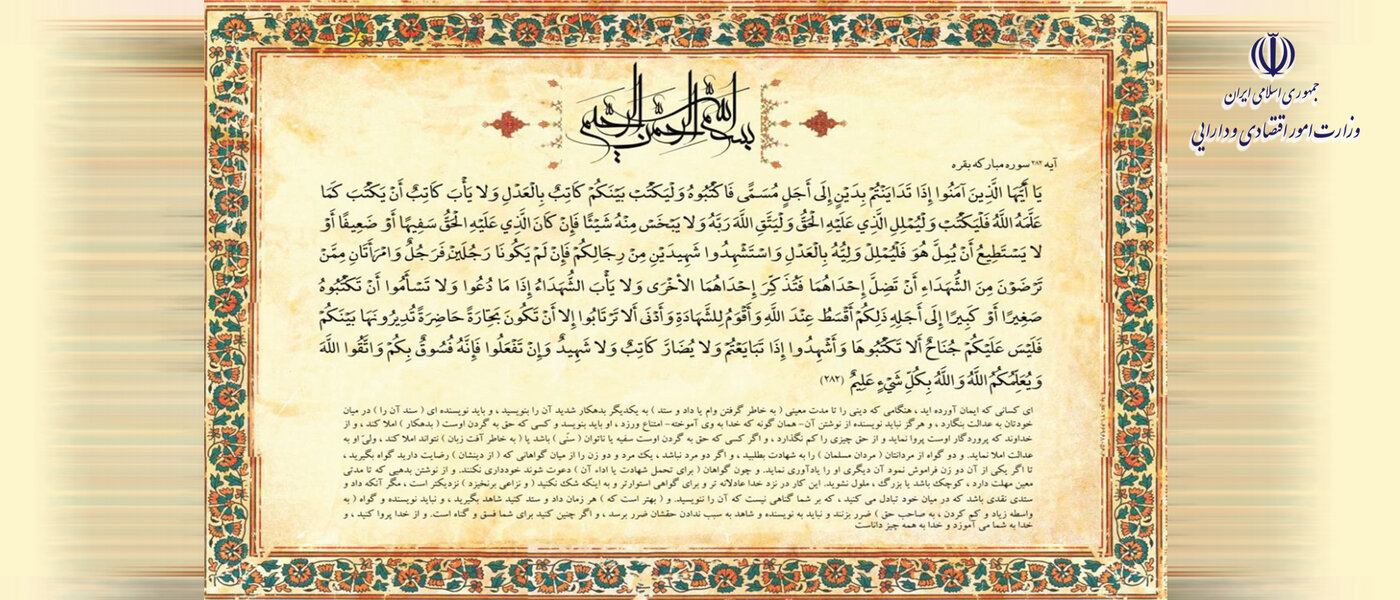 جمهوری اسلامی ایران
وزارت امور اقتصادی و دارایی
بسم الله الرحمن الرحیم
آیه ۲۸۲ سوره مبارکه بقره
يَا أَيُّهَا الَّذِينَ آمَنُوا إِذَا تَدَايَنْتُمْ بِدَيْنٍ إِلَى أَجَلٍ مُسَمًّى فَاكْتُبُوهُ وَلْيَكْتُبْ بَيْنَكُمْ كَاتِبٌ بِالْعَدْلِ وَلا يَأْبَ كَاتِبٌ أَنْ يَكْتُبَ كَمَا
عَلَّمَهُ اللَّهُ فَلْيَكْتُبْ وَلْيُمْلِلِ الَّذِي عَلَيْهِ الْحَقُّ وَلْيَتَّقِ اللَّهَ رَبَّهُ وَلا يَبْخَسْ مِنْهُ شَيْئًا فَإِنْ كَانَ الَّذِي عَلَيْهِ الْحَقُّ سَفِيهًا أَوْ ضَعِيفًا أَوْ
لا يَسْتَطِيعُ أَنْ يُمِلَّ هُوَ فَلْيُمْلِلْ وَلِيُّهُ بِالْعَدْلِ وَاسْتَشْهِدُوا شَهِيدَيْنِ مِنْ رِجَالِكُمْ فَإِنْ لَمْ يَكُونَا رَجُلَيْنِ فَرَجُلٌ وَامْرَأَتَانِ مِمَّنْ
تَرْضَوْنَ مِنَ الشُّهَدَاءِ أَنْ تَضِلَّ إِحْدَاهُمَا فَتُذَكِّرَ إِحْدَاهُمَا الأخْرَى وَلا يَأْبَ الشُّهَدَاءُ إِذَا مَا دُعُوا وَلا تَسْأَمُوا أَنْ تَكْتُبُوهُ
صَغِيرًا أَوْ كَبِيرًا إِلَى أَجَلِهِ ذَلِكُمْ أَقْسَطُ عِنْدَ اللَّهِ وَأَقْوَمُ لِلشَّهَادَةِ وَأَدْنَى أَلا تَرْتَابُوا إِلا أَنْ تَكُونَ تِجَارَةً حَاضِرَةً تُدِيرُونَهَا بَيْنَكُمْ
فَلَيْسَ عَلَيْكُمْ جُنَاحٌ أَلا تَكْتُبُوهَا وَأَشْهِدُوا إِذَا تَبَايَعْتُمْ وَلا يُضَارَّ كَاتِبٌ وَلا شَهِيدٌ وَإِنْ تَفْعَلُوا فَإِنَّهُ فُسُوقٌ بِكُمْ وَاتَّقُوا اللَّهَ
وَيُعَلِّمُكُمُ اللَّهُ وَاللَّهُ بِكُلِّ شَيْءٍ عَلِيمٌ (۲۸۲)
ای کسانی که ایمان آورده اید ، هنگامی که دینی را تا مدت معینی ( به خاطر گرفتن وام یا داد و ستد ) به یکدیگر بدهکار شدید آن را بنویسید ، و باید نویسنده ای ( سند آن را ) در میان
خودتان به عدالت بنگارد ، و هرگز نباید نویسنده از نوشتن آن- همان گونه که خدا به وی آموخته- امتناع ورزد ، او باید بنویسد و کسی که حق به گردن اوست ( بدهکار ) املا کند ، و از
خداوند که پروردگار اوست پروا نماید و از حق چیزی را کم نگذارد ، و اگر کسی که حق به گردن اوست سفیه یا ناتوان ( سنّی ) باشد یا ( به خاطر آفت زبان ) نتواند املا کند ، ولیّ او به
عدالت املا نماید. و دو گواه از مردانتان ( مردان مسلمان ) را به شهادت بطلبید ، و اگر دو مرد نباشد ، یک مرد و دو زن را از میان گواهانی که ( از دینشان ) رضایت دارید گواه بگیرید ،
تا اگر یکی از آن دو زن فراموش نمود آن دیگری او را یادآوری نماید. و چون گواهان ( برای تحمل شهادت یا اداء آن ) دعوت شوند خودداری نکنند. و از نوشتن بدهیی که تا مدتی
معین مهلت دارد ، کوچک باشد یا بزرگ ، ملول نشوید. این کار در نزد خدا عادلانه تر و برای گواهی استوارتر و به اینکه شک نکنید ( و نزاعی برنخیزد ) نزدیکتر است ، مگر آنکه داد و
ستدی نقدی باشد که در میان خود تبادل می کنید ، که بر شما گناهی نیست که آن را ننویسید. و ( بهتر است که ) هر زمان داد و ستد کنید شاهد بگیرید ، و نباید نویسنده و گواه ( به
واسطه زیاد و کم کردن ، به صاحب حق ) ضرر بزنند و نباید به نویسنده و شاهد به سبب ندادن حقشان ضرر برسد ، و اگر چنین کنید برای شما فسق و گناه است. و از خدا پروا کنید ، و
خدا به شما می آموزد و خدا به همه چیز داناست